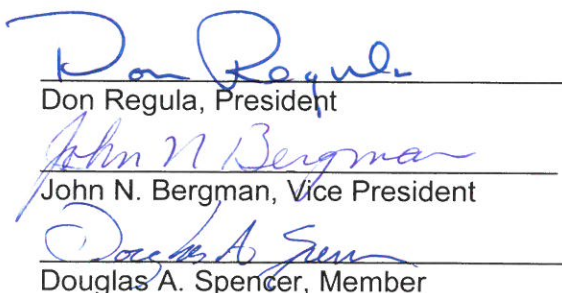 Don Regula
Don Regula, President
John N Bergman
John N. Bergman, Vice President
Douglas A Spencer
Douglas A. Spencer, Member